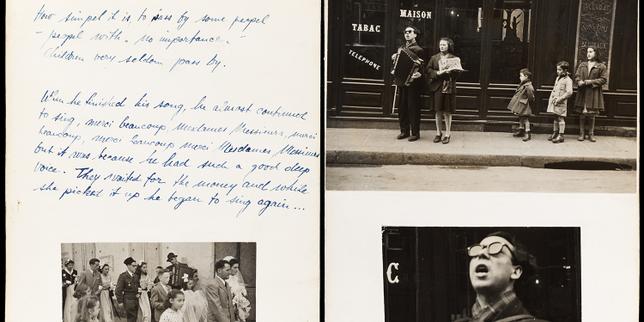 How simpel it is to pass by some peopel
- peopel with - no importance. -
Children very seldom pass by.
When he finished his song, he almost continued
to sing, merci beaucoup Mesdames Messieurs, merci
beaucoup, merci beaucoup merci Mesdames Messieurs
but it was because he had such a good deep
voice. They waited for the money and while
she picked it up he began to sing again...
MAISON
TABAC
TELEPHONE
C